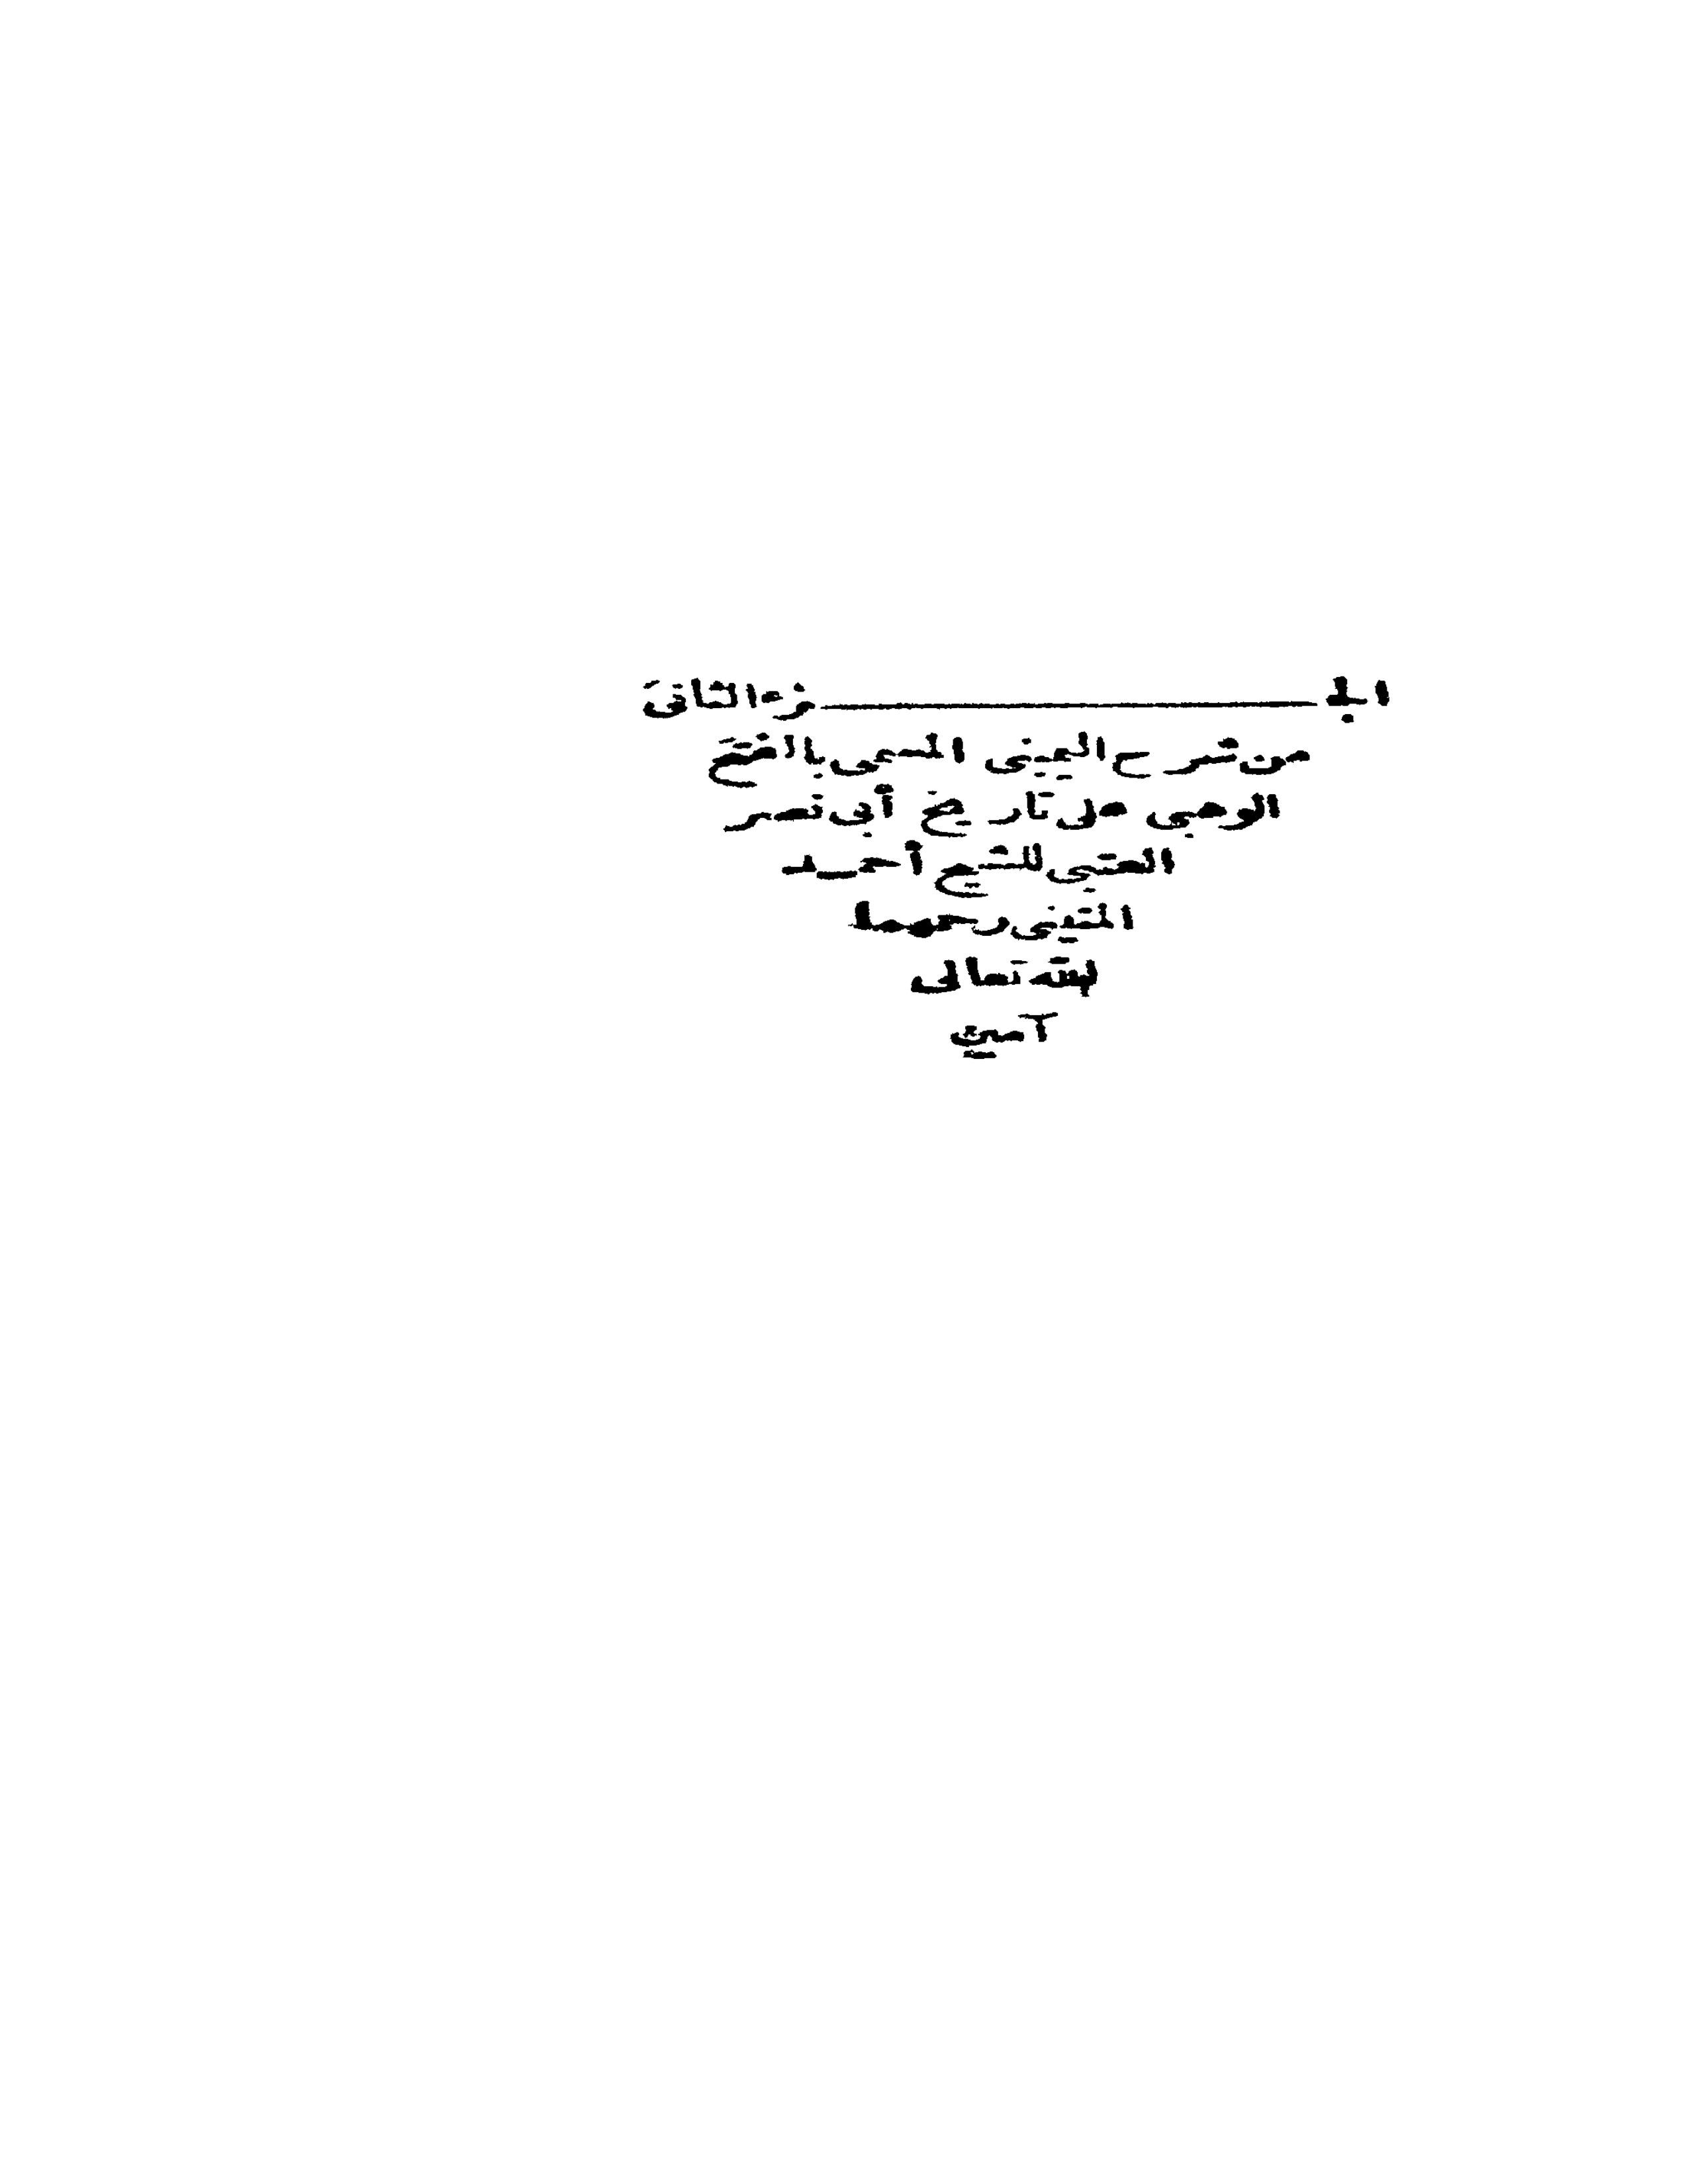 الجـــــــــــــــــــــزء الثانى
من شرح اليمينى المسمى بالفتح
الوهبى على تاريخ أبى نصر
العتبى للشيخ أحمد
المنينى رحمهما
الله تعالى
آمين